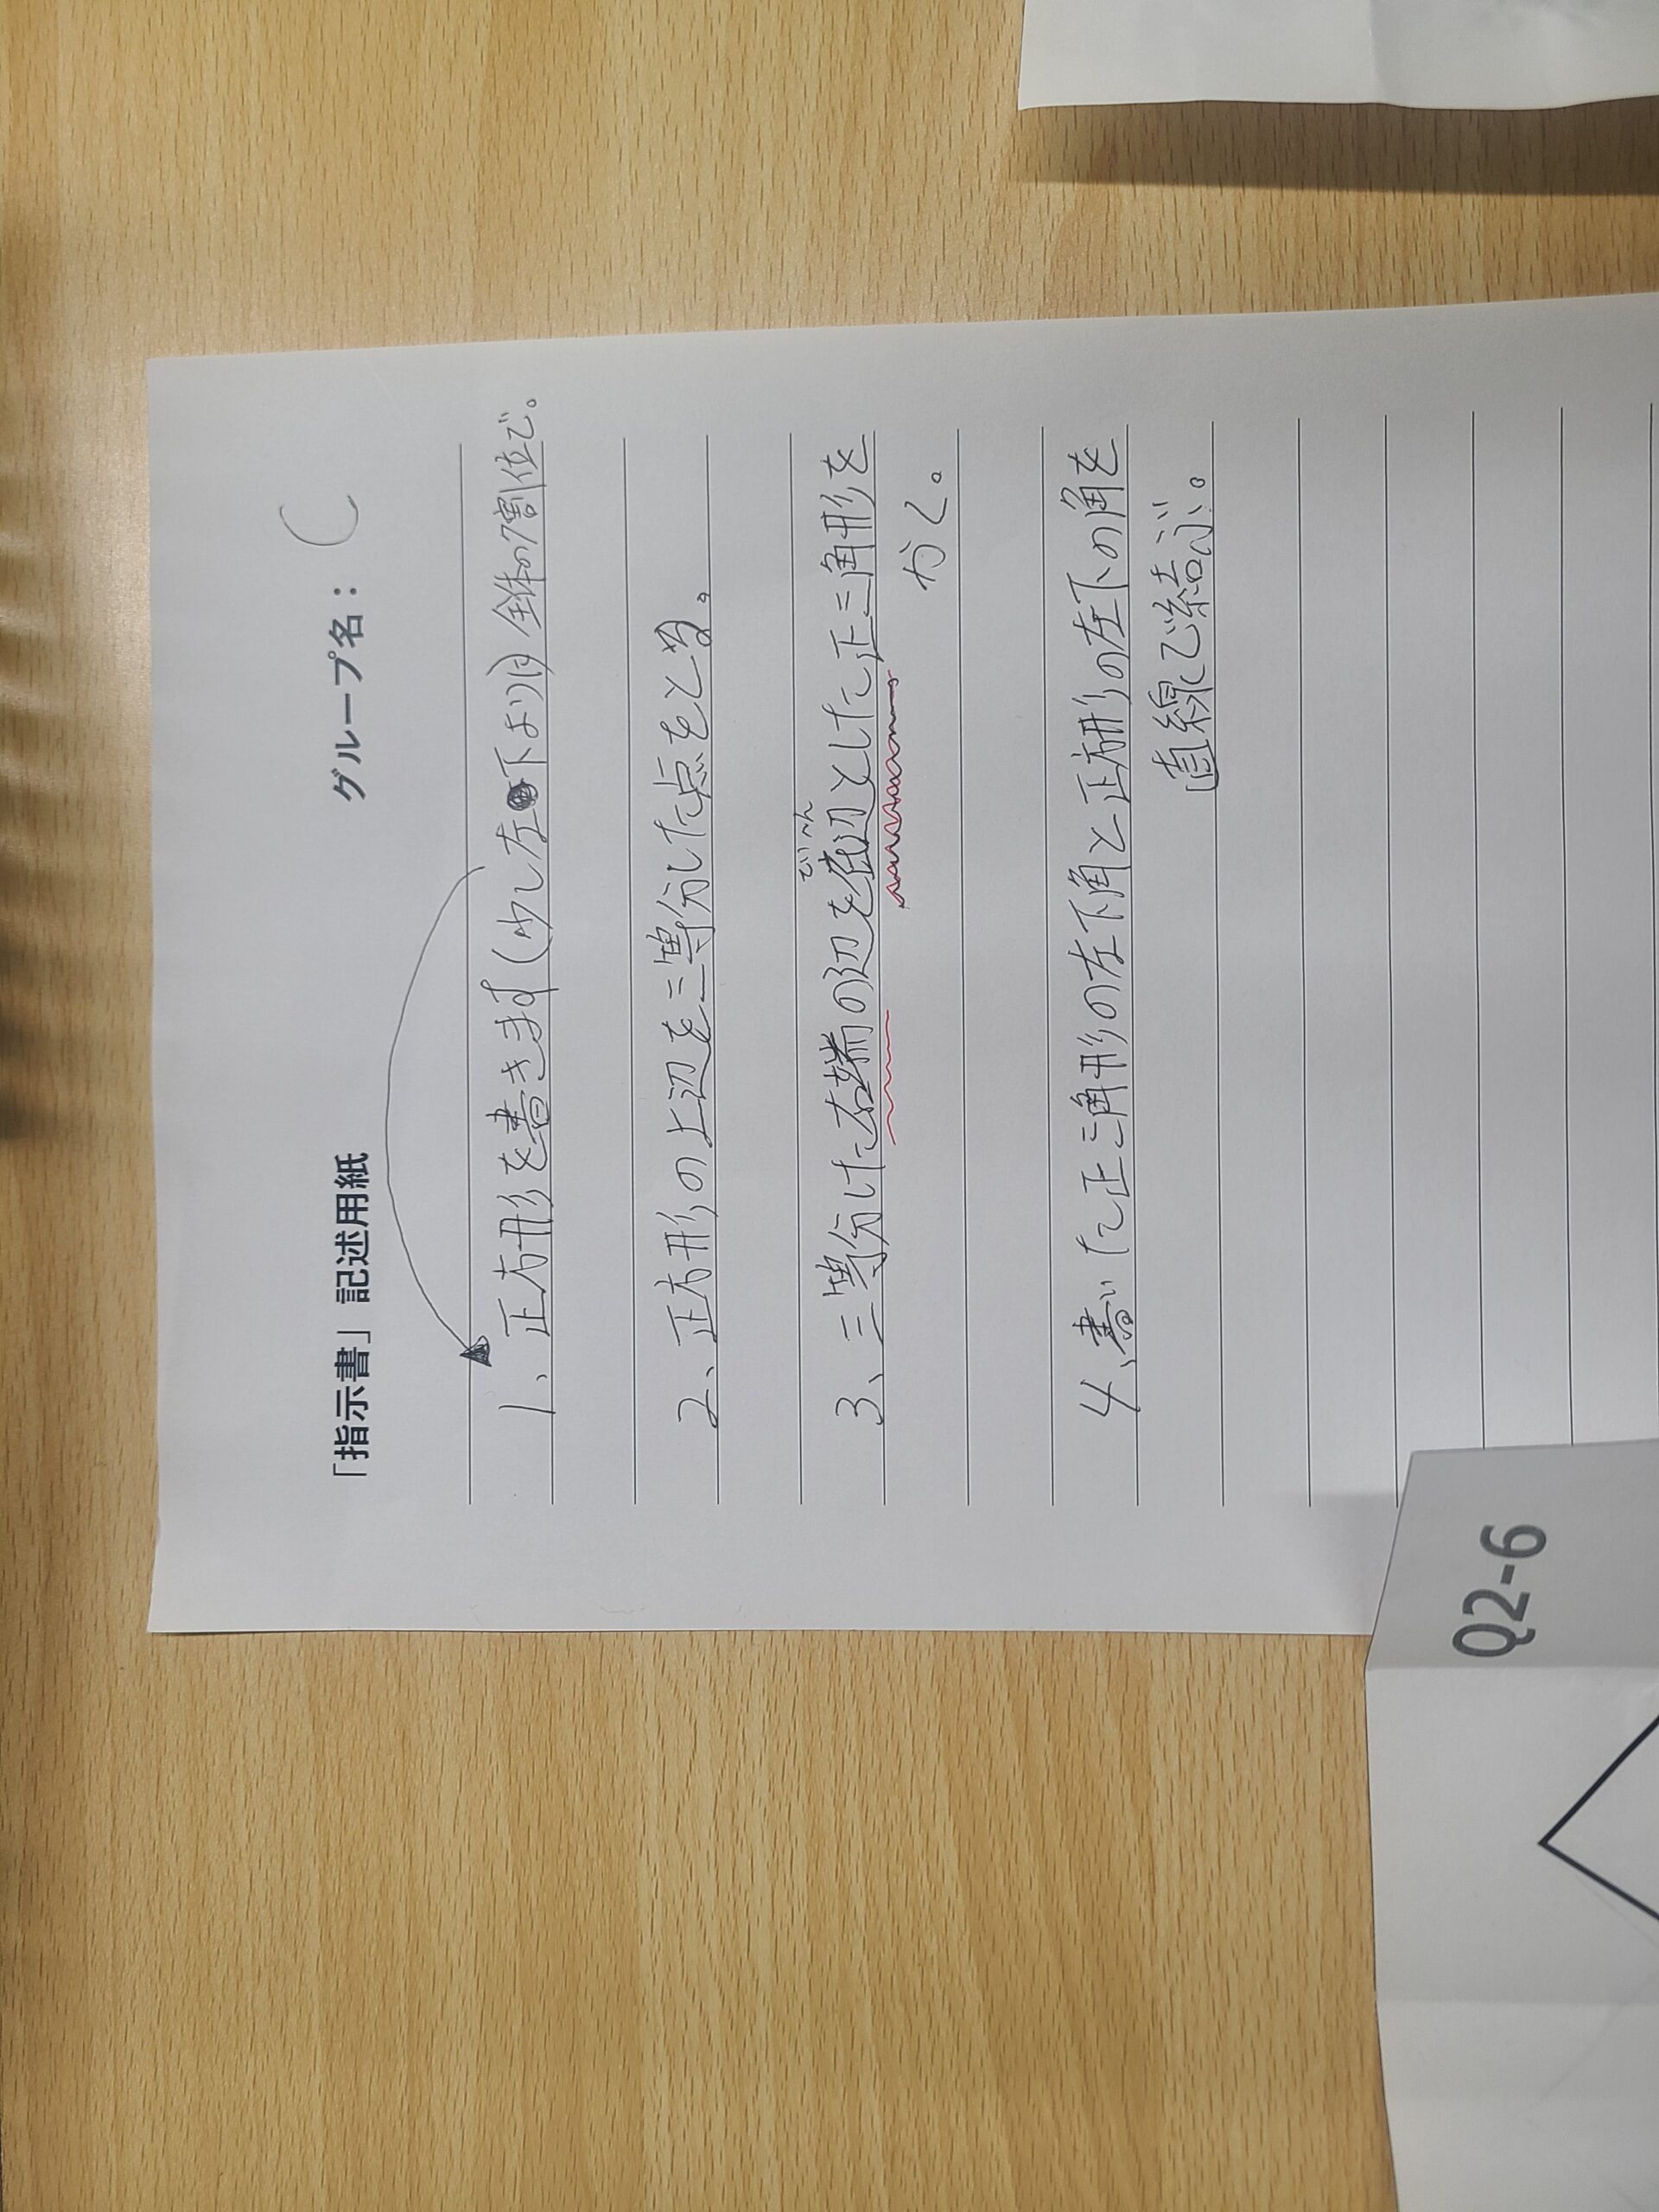 「指示書」記述用紙 グループ名： C
1、正方形を書きます(少し左下より)全体の7割位で。
2、正方形の上辺を三等分した点をとる。
3、三等分けた右端の辺を底辺とした正三角形を
ていへん
かく。
4、書いた正三角形の左下角と正方形の左下の角を
直線で結ぶ。
Q2-6